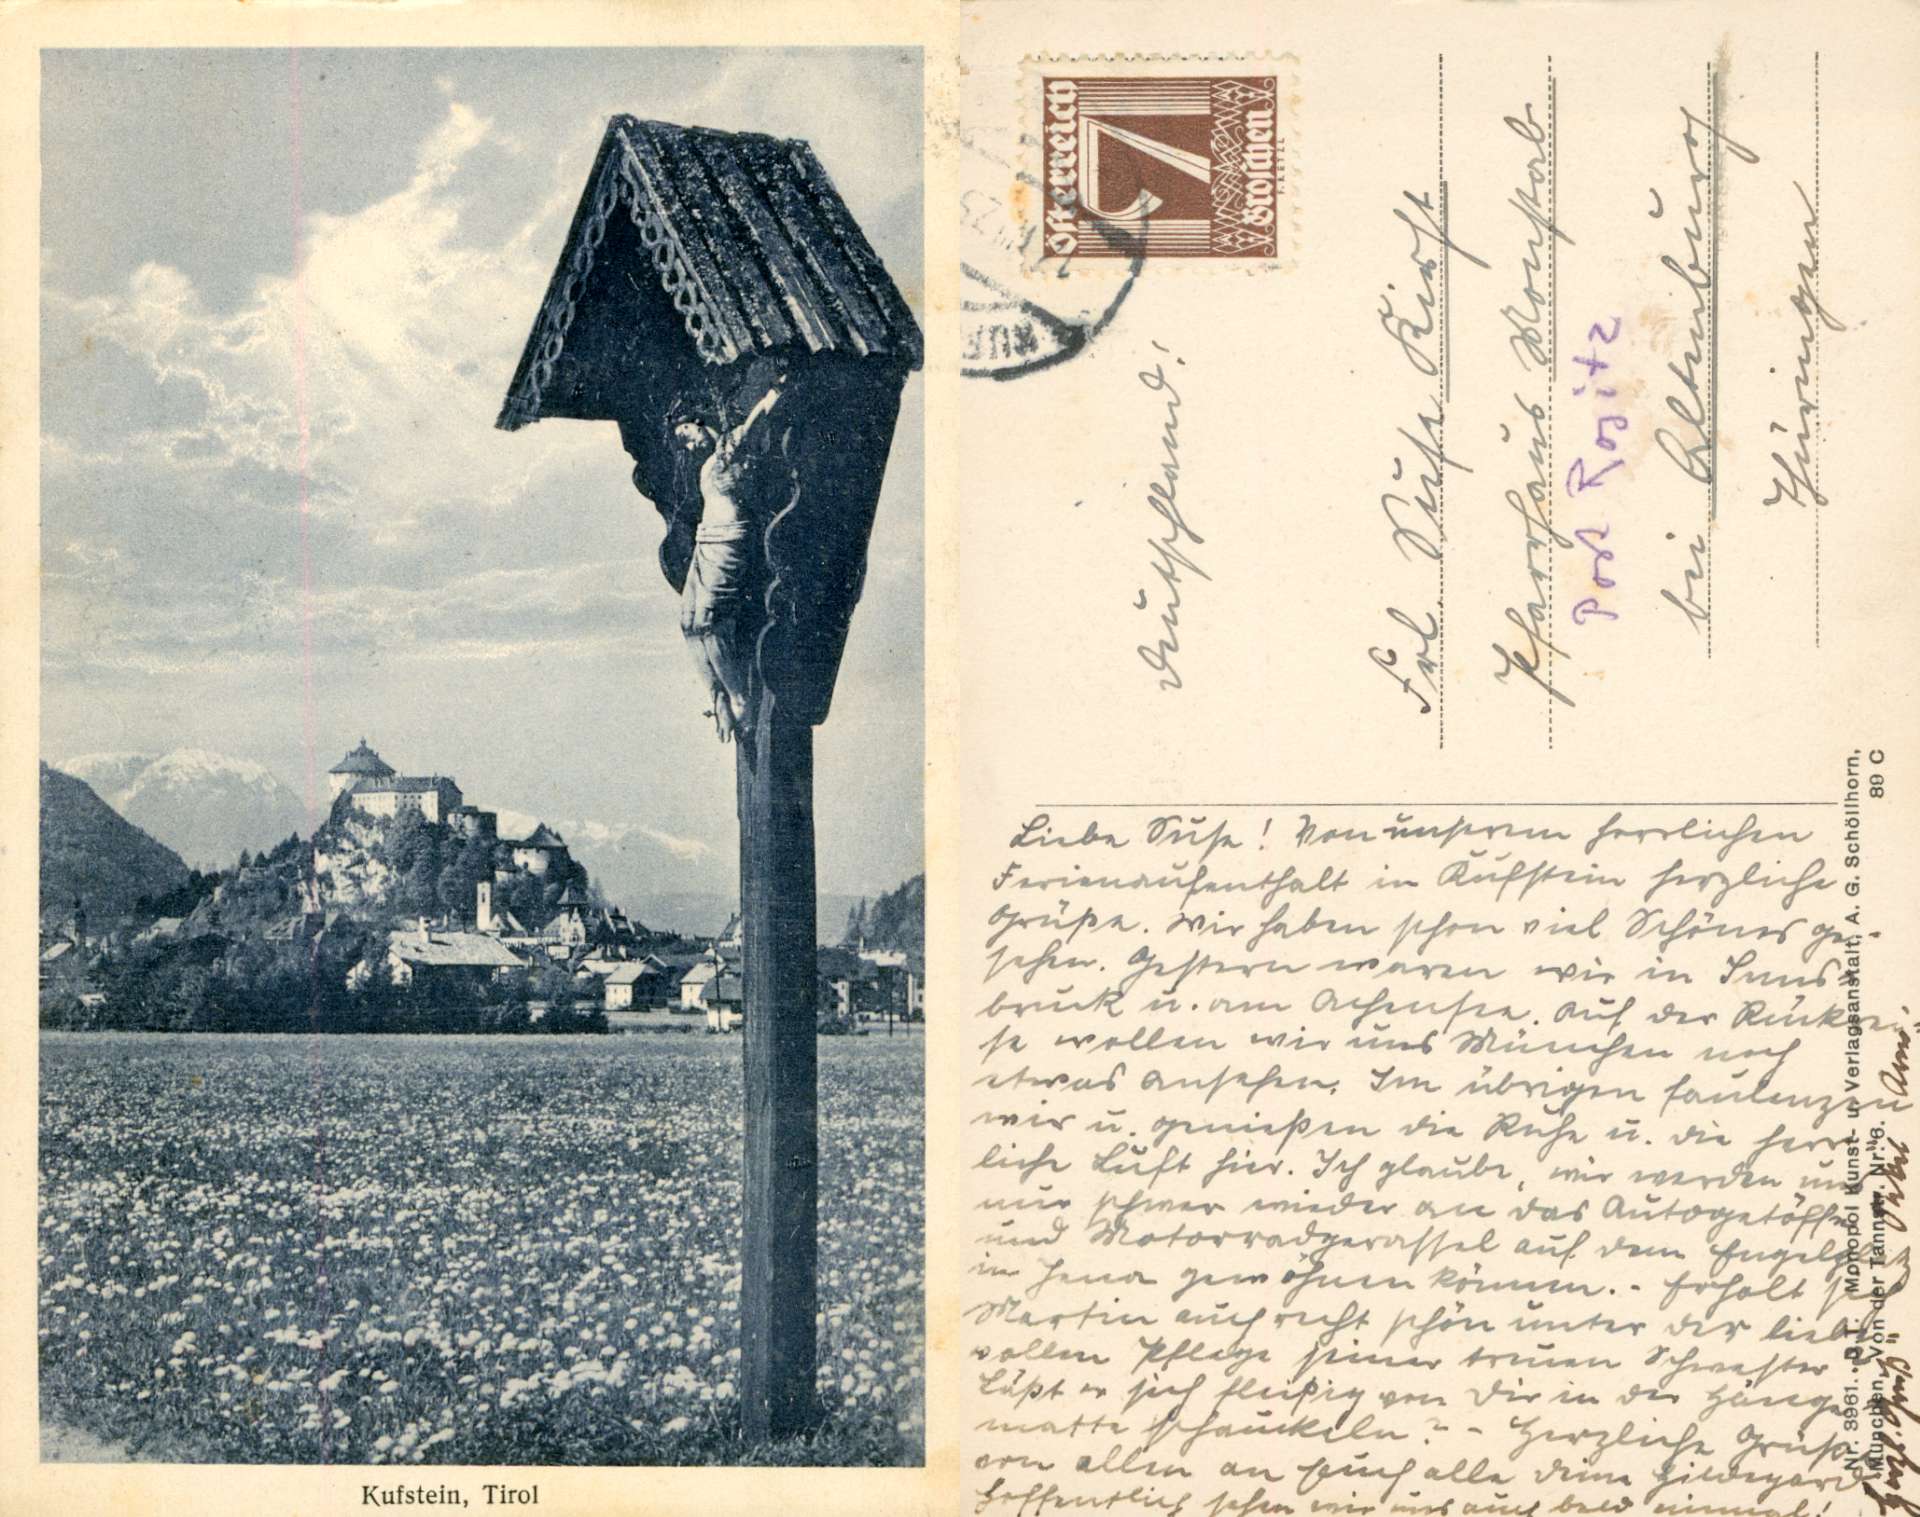 Kufstein, Tirol
Österreich
7
Groschen
KUF
Deutschland!
Frl. Suse Kirst
Pfarrhaus Monstab
Post Rositz
bei Altenburg
Thüringen
Liebe Suse! Von unserem herrlichen
Ferienaufenthalt in Kufstein herzliche
Grüße. Wir haben schon viel Schönes ge-
sehen. Gestern waren wir in Inns-
bruck u. am Achensee. Auf der Rückrei-
se wollen wir uns München noch
etwas ansehen. Im übrigen faulenzen
wir u. genießen die Ruhe u. die herr-
liche Luft hier. Ich glaube, wir werden uns
nur schwer wieder an das Autogetöff
und Motorradgerassel auf dem
in Jena gewöhnen können. - Erholt sich
Martin auch recht schön unter der lieb
vollen Pflege seiner treuen Schwester
Läßt er sich fleißig von Dir in der Hänge
matte schaukeln? - Herzliche Grüße
von allen an Euch alle Deine Hildegard
Hoffentlich sehen wir uns auch bald einmal!
Nr. 3961. D. T. Monopol Kunst- u. Verlagsanstalt, A. G. Schöllhorn,
München, Von der Tannstr. Nr. 6.
89 C